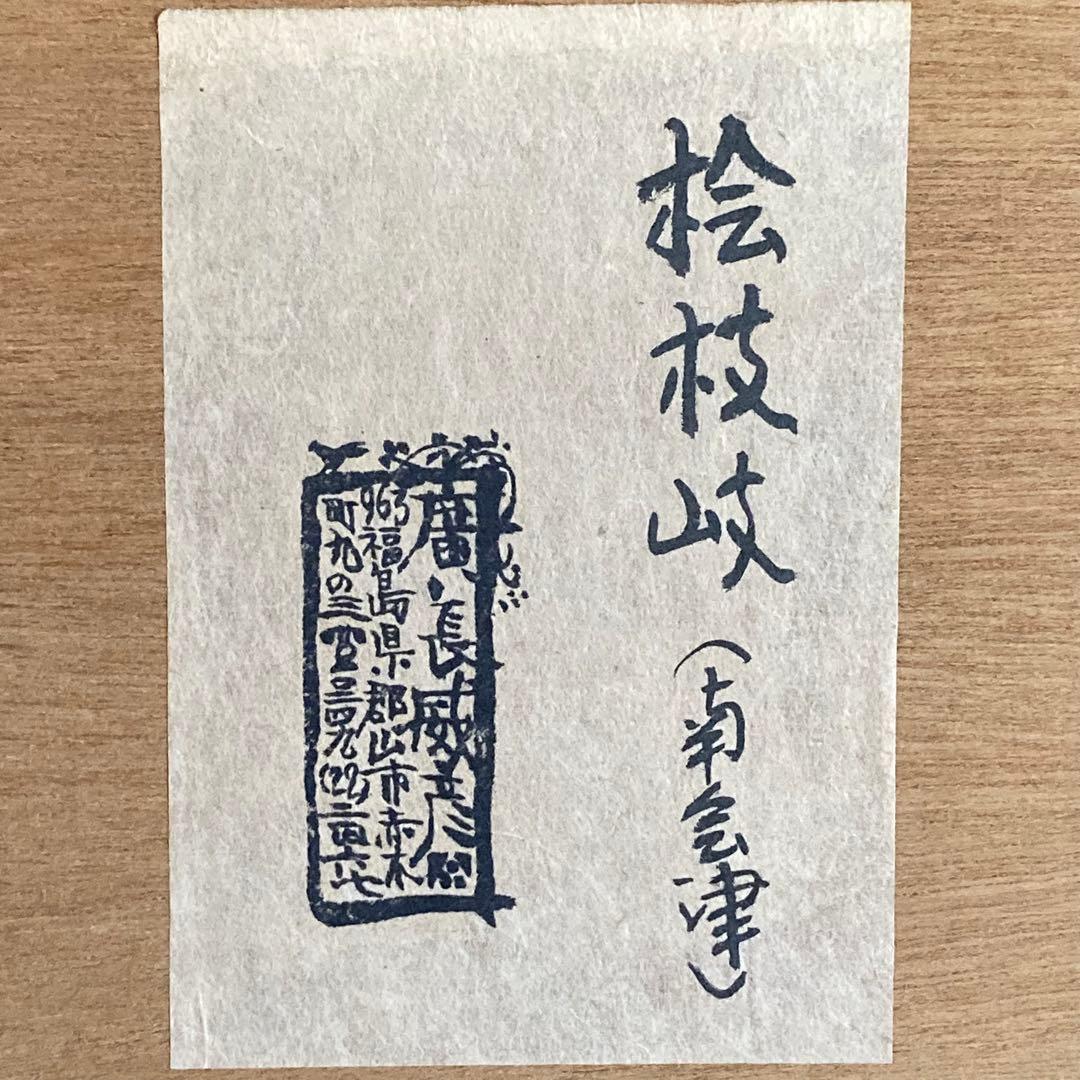 桧枝岐(南会津)
廣長威彦
963福島県郡山市赤木
町九の三 ☎〇二四九(22)二四六七